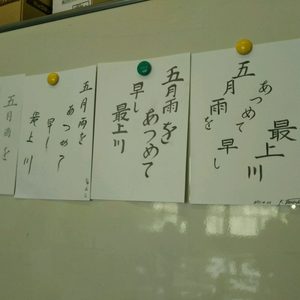 五月雨を
五月雨を
あつめて
早し
最上川
五月雨を
あつめて
早し
最上川
五月雨を
あつめて
早し
最上川